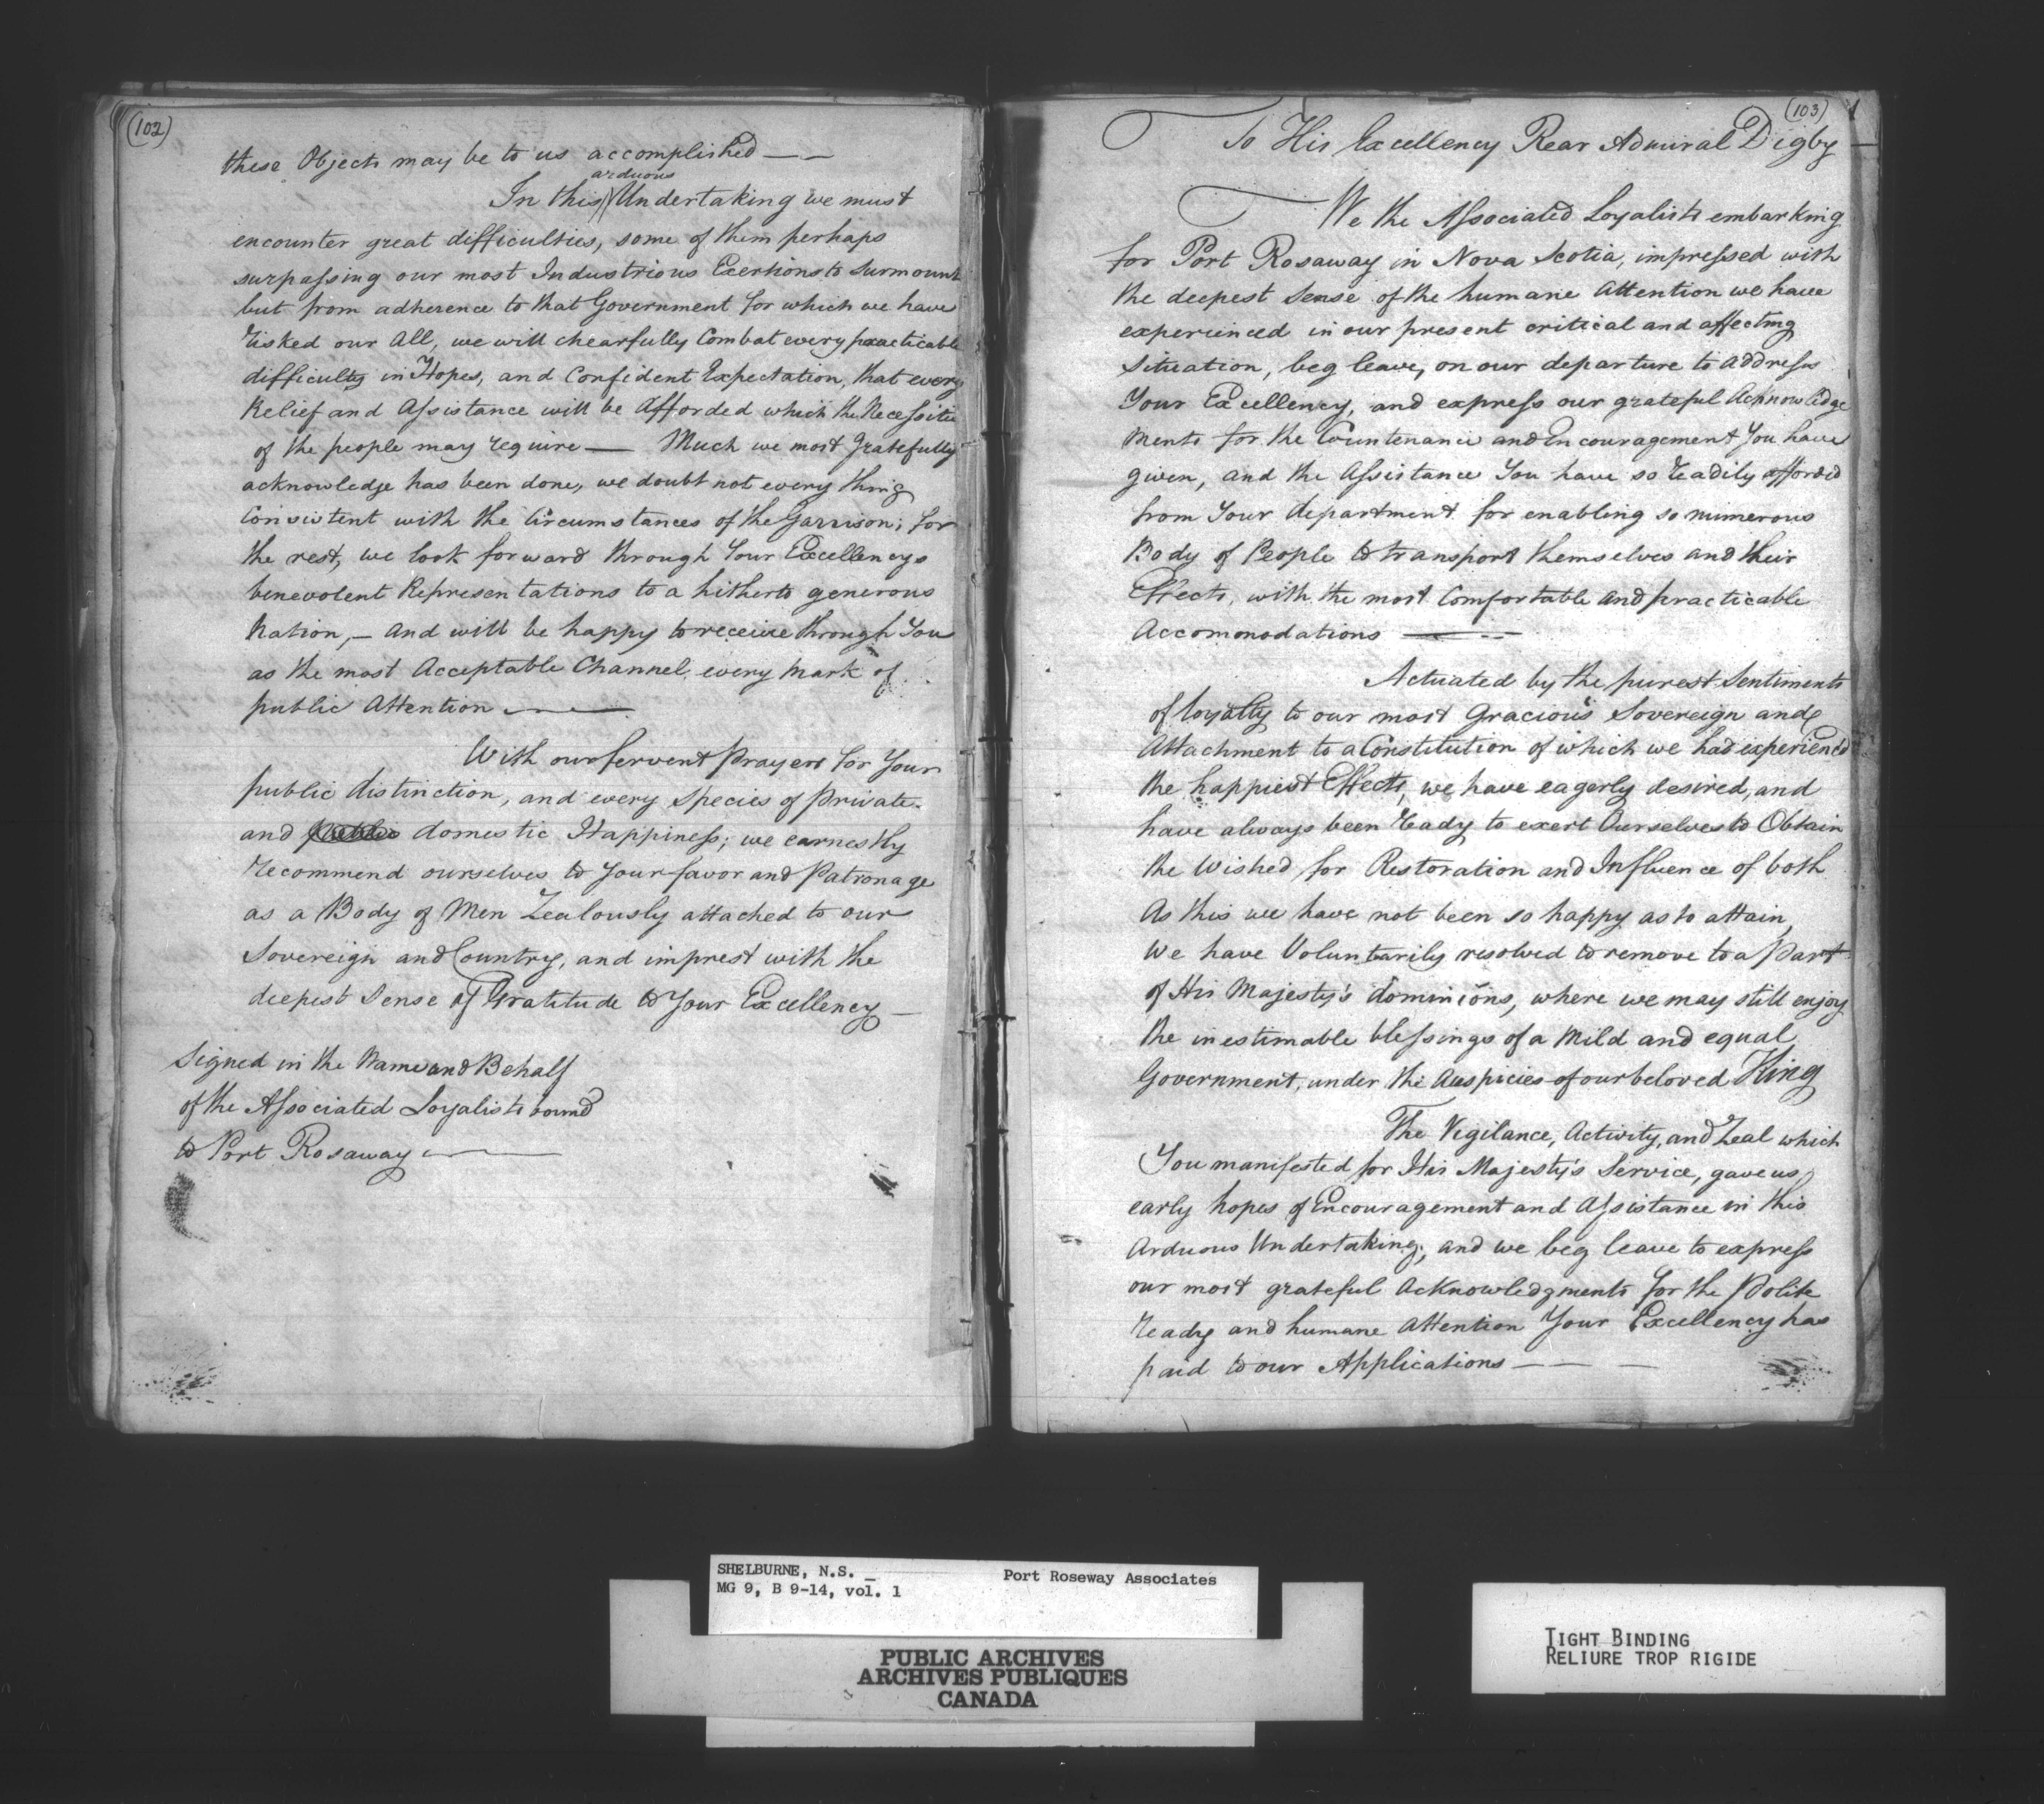 (102)
these Objects may be to us accomplished — —
arduous
In this Undertaking we must
encounter great difficulties, some of them perhaps
surpassing our most Industrious Exertions to Surmount
but from adherence to that Government for which we have
risked our All, we will chearfully Combat every practicable
difficulty in Hopes, and Confident Expectation, that every
Relief and Assistance will be Afforded which the Necessitie
of the people may require — Much we most Gratefully
acknowledge has been done, we doubt not every thing
Consistent with the Circumstances of the Garrison; for
the rest, we look forward through Your Excellencys
benevolent Representations to a hitherto generous
Nation, — and will be happy to receive through You
as the most Acceptable Channel, every Mark of
public Attention —
With our fervent Prayers for Your
public distinction, and every Species of private
and public domestic Happiness; we earnestly
recommend ourselves to Your favor and Patronage
as a Body of Men Zealously attached to our
Sovereign and Country, and imprest with the
deepest Sense of Gratitude to Your Excellency —
Signed in the Name and Behalf
of the Associated Loyalists bound
to Port Rosaway —
(103)
To His Excellency Rear Admiral Digby
We the Associated Loyalists embarking
for Port Rosaway in Nova Scotia, impressed with
the deepest Sense of the humane Attention we have
experienced in our present critical and affecting
Situation, beg leave, on our departure to Address
Your Excellency, and express our grateful Acknowledge
ments for the Countenance and Encouragement You have
given, and the Assistance You have so readily afforded
from Your department for enabling so numerous
Body of People to transport themselves and their
Effects, with the most Comfortable and practicable
Accomonodations —
Actuated by the purest Sentiments
of loyalty to our most Gracious Sovereign and
Attachment to a Constitution of which we had experienc'd
the happiest Effects, we have eagerly desired, and
have always been ready to exert Ourselves to Obtain
the Wished for Restoration and Influence of both
As this we have not been so happy as to attain,
We have Voluntarily resolved to remove to a Part
of His Majesty's dominions, where we may still enjoy
the inestimable blessings of a Mild and equal
Government, under the Auspicies of our beloved King
The Vigilance, Activity, and Zeal which
You manifested for His Majesty's Service, gave us
early hopes of Encouragement and Assistance in this
Arduous Undertaking, and we beg leave to express
our most grateful Acknowledgments for the Polite
ready and humane Attention Your Excellency has
paid to our Applications — — —
SHELBURNE, N.S. _ Port Roseway Associates
MG 9, B 9-14, vol. 1
PUBLIC ARCHIVES
ARCHIVES PUBLIQUES
CANADA
TIGHT BINDING
RELIURE TROP RIGIDE